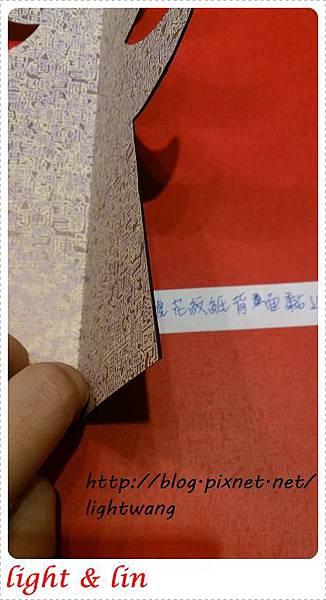 花紋紙背面黏
http://blog.pixnet.net/
lightwang
light & lin